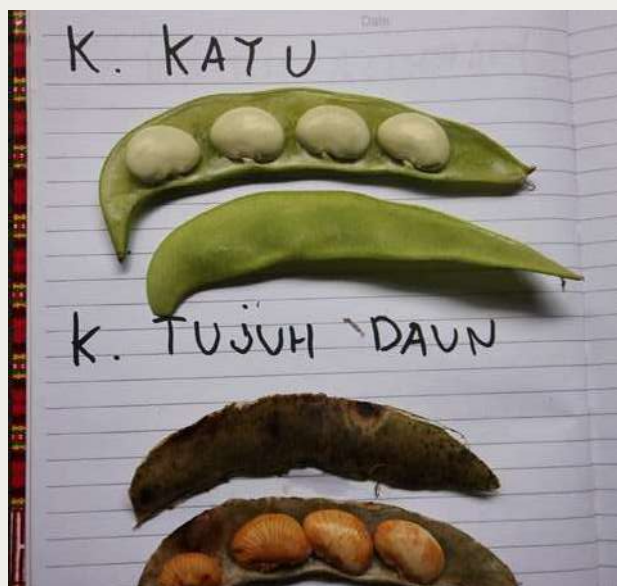 Date
K. KAYU
K. TUJUH DAUN